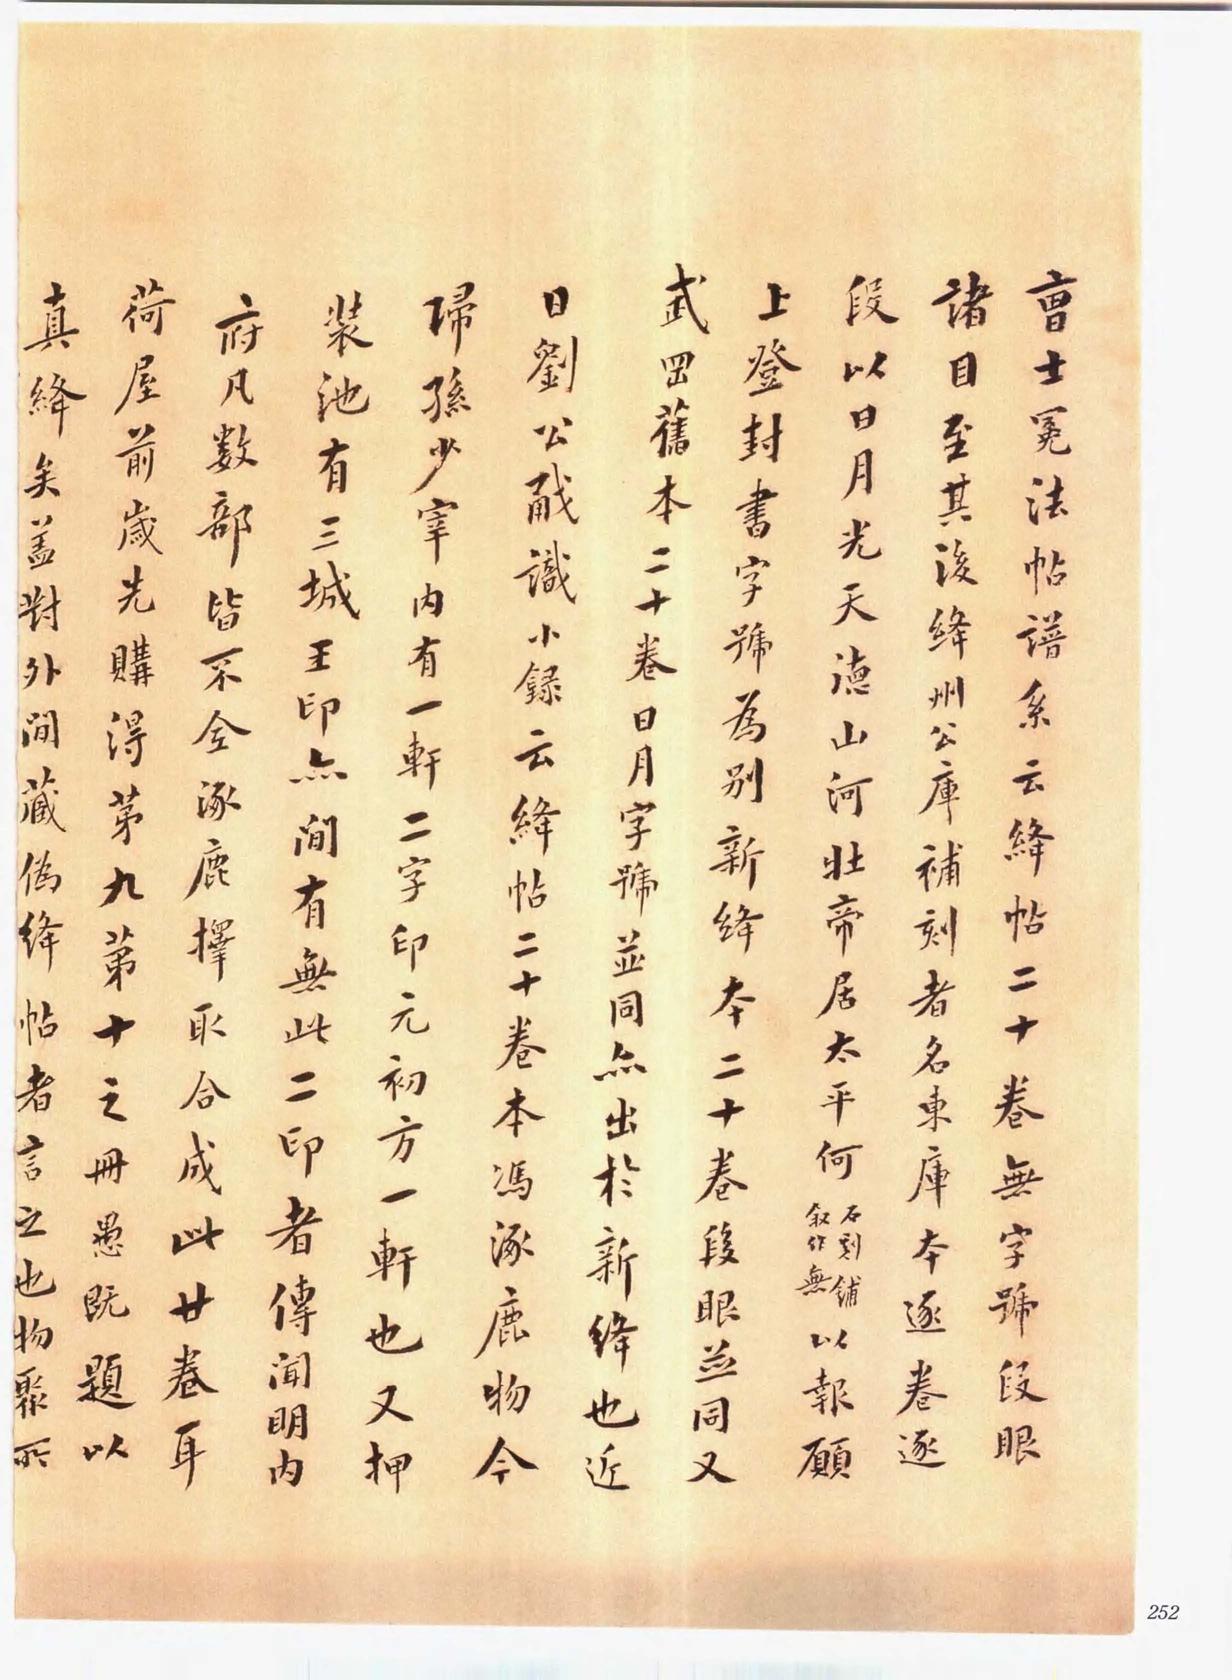 曹士冕法帖譜系云絳帖二十卷無字號段眼
諸目至其後絳州公庫補刻者名東庫本逐卷逐
段以日月光天德山河壯帝居太平何石刻鋪叙作無以報願
上登封書字號為别新絳本二十卷段眼並同又
武岡舊本二十卷日月字號並同亦出於新絳也近
日劉公㦷識小録云絳帖二十卷本馮涿鹿物今
歸孫少宰内有一軒二字印元初方一軒也又押
裝池有三城王印亦間有無此二印者傳聞明内
府凡數部皆不全涿鹿擇取合成此廿卷耳
荷屋前歲先購得第九第十之冊愚既題以
真絳矣蓋對外間藏偽絳帖者言之也物聚所
252